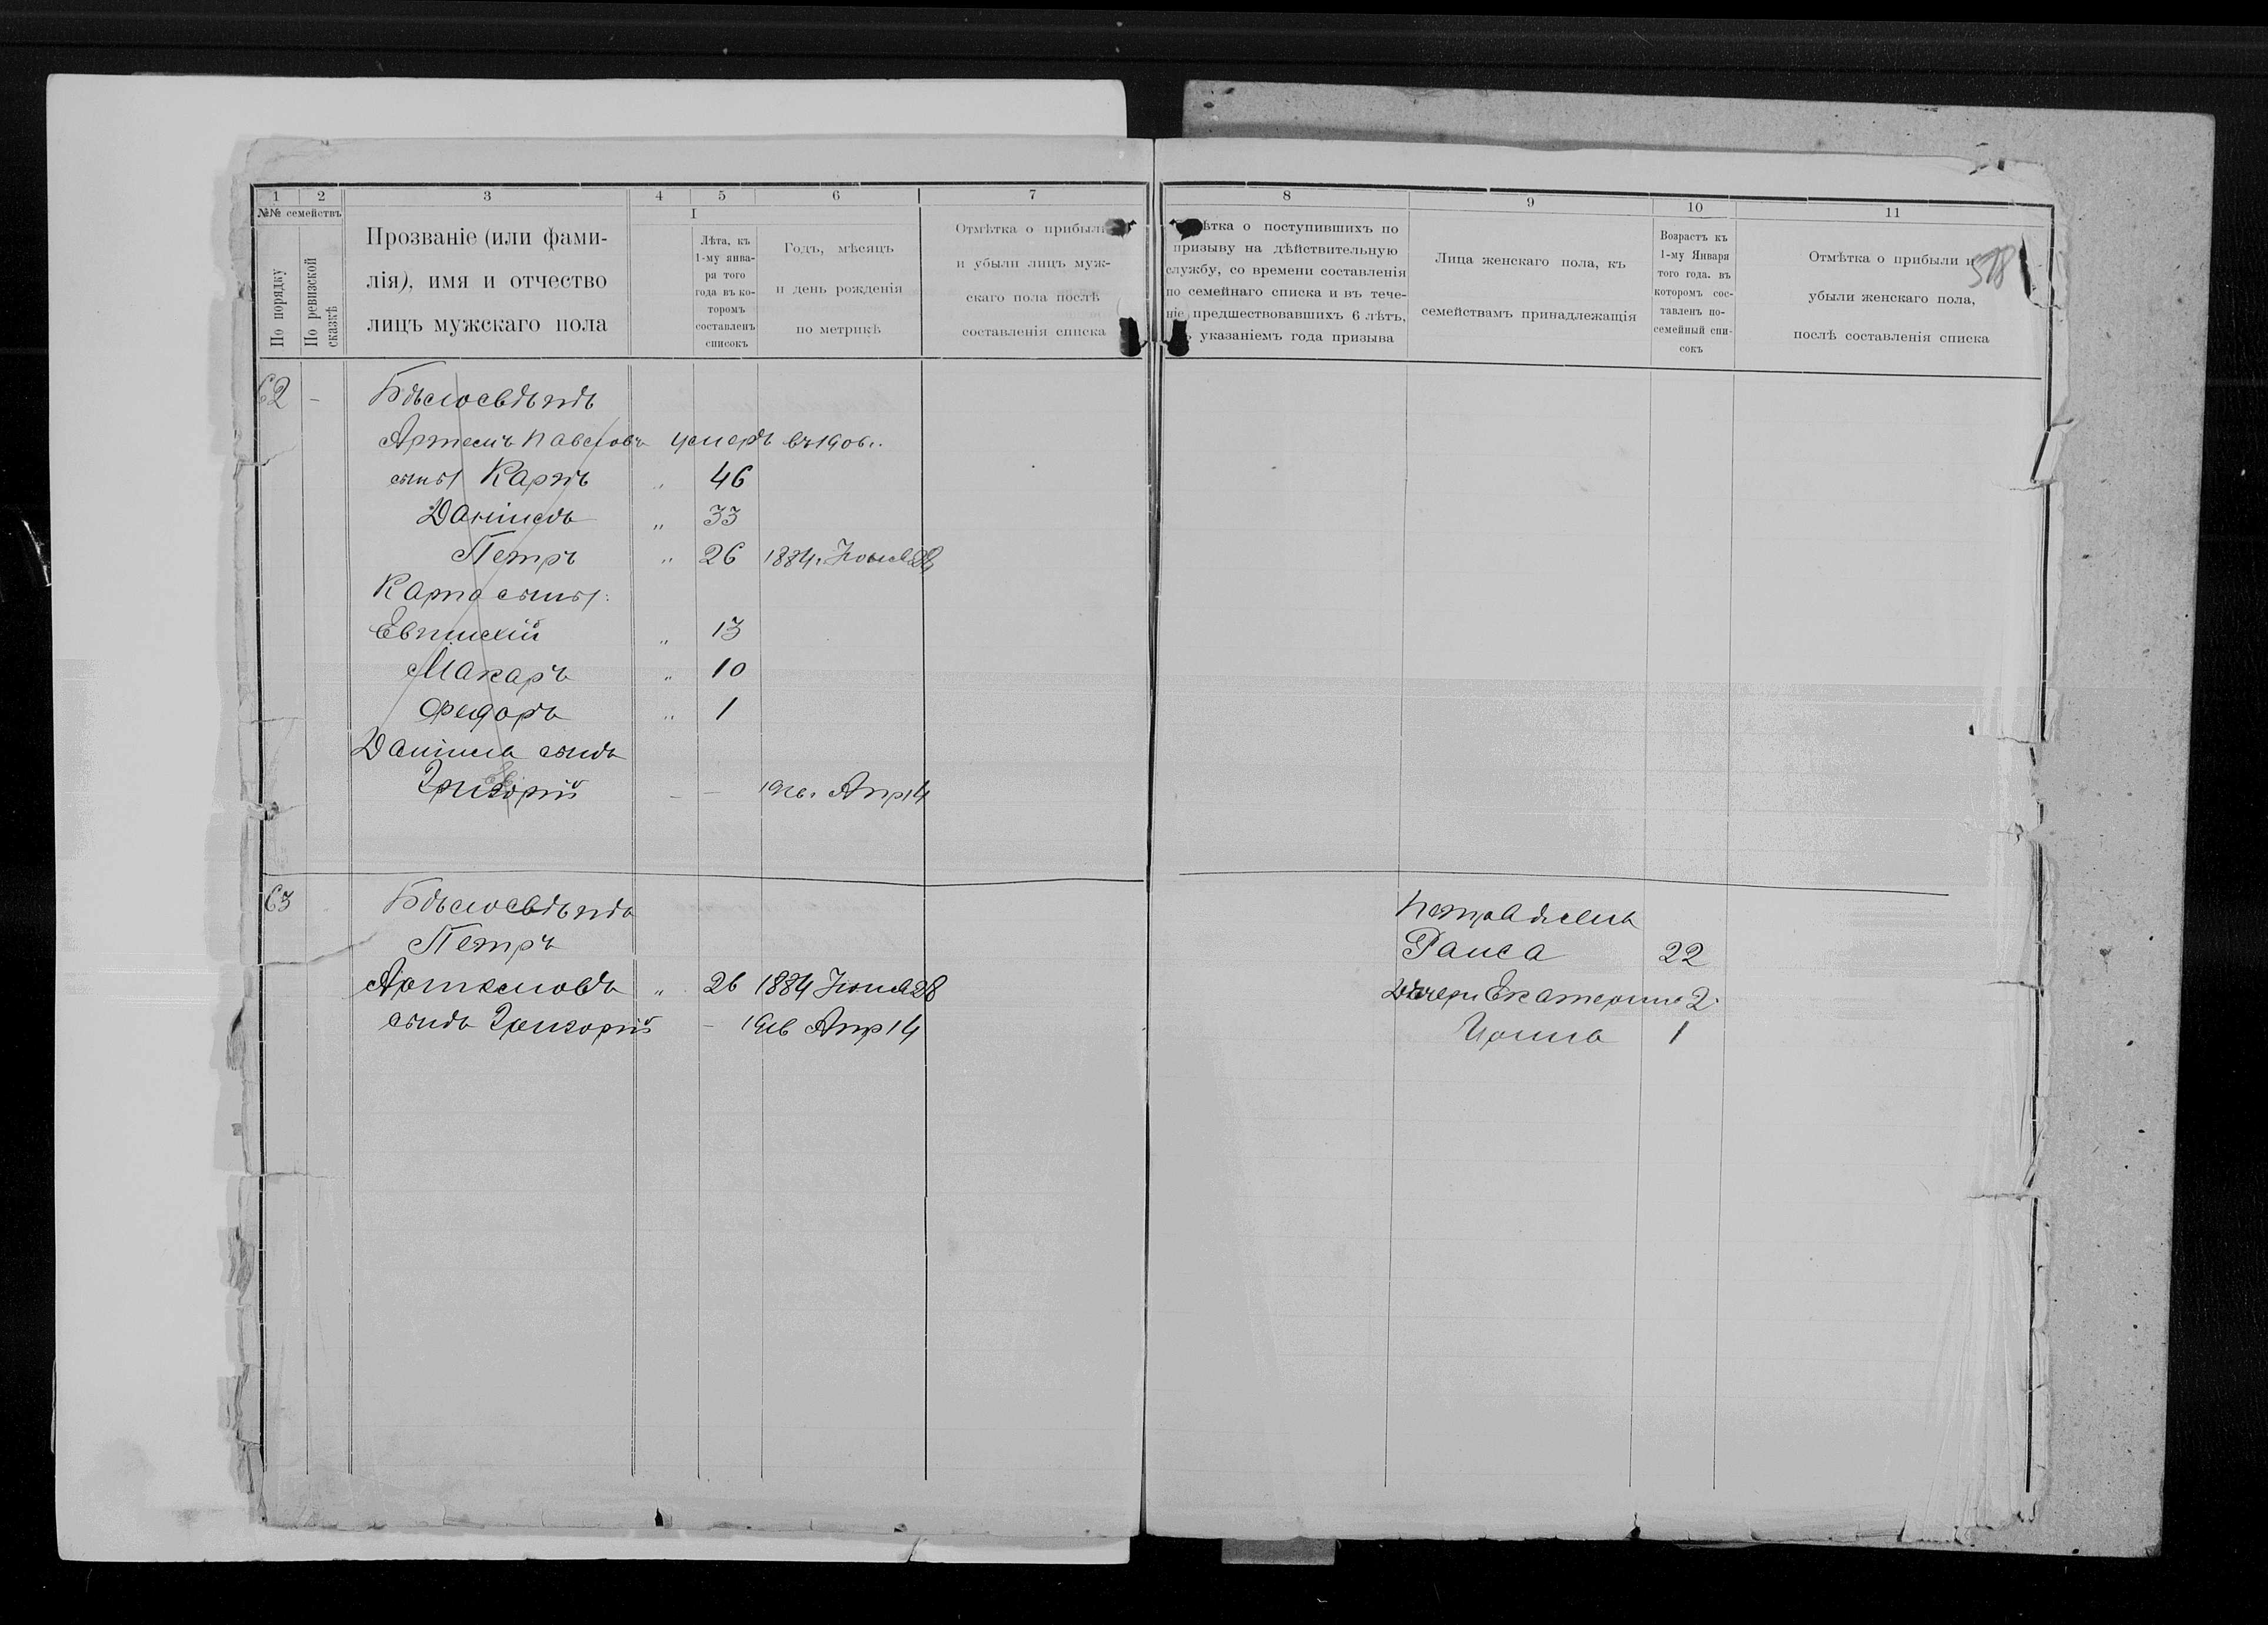 1 2 3 4 5 6 7
№№ семействъ
По порядку
По ревизской сказкѣ
Прозваніе (или фами-
лія), имя и отчество
лицъ мужскаго пола
I
Лѣта, къ
1-му янва-
ря того
года въ ко-
торомъ
составленъ
списокъ
Годъ, мѣсяцъ
и день рожденія
по метрикѣ
Отмѣтка о прибыли
и убыли лицъ муж-
скаго пола послѣ
составленія списка
62 - Бѣлосвѣтъ
Артемъ Павловъ умеръ въ 1906 г.
сыны Карпъ " 46
Даніилъ " 33
Петръ " 26 1884 г. Іюня
Карпа сыны:
Евтихій " 13
Макаръ " 10
Федоръ " 1
Даніила сынъ
Григорій - - Апр 14
63 Бѣлосвѣтъ
Петръ
Артемовъ " 26 1884 Іюня 28
сынъ Григорій - Апр 14
8 9 10 11
ѣтка о поступившихъ по
призыву на дѣйствительную
службу, со времени составленія
по семейнаго списка и въ тече-
ніе предшествовавшихъ 6 лѣтъ,
указаніемъ года призыва
Лица женскаго пола, къ
семействамъ принадлежащія
Возрастъ къ
1-му Января
того года. въ
которомъ сос-
тавленъ по-
семейный спи-
сокъ
Отмѣтка о прибыли и
убыли женскаго пола,
послѣ составленія списка
518
Петра жена
Раиса 22
дочери Екатерина 2
Ирина 1